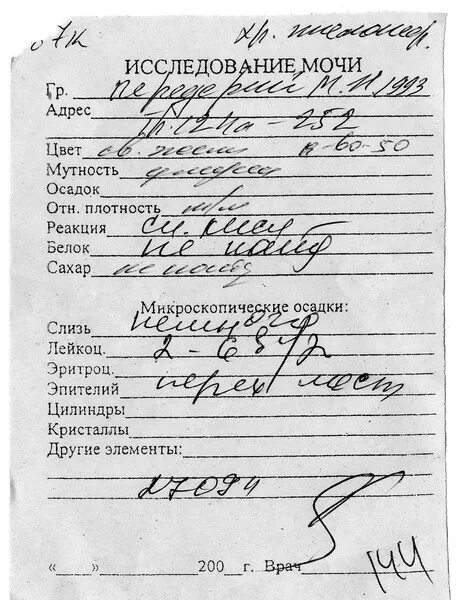 хр. пиелонефр.
ИССЛЕДОВАНИЕ МОЧИ
Гр. Передерий М. И 1993
Адрес
124а - 252
Цвет св. желт
Мутность
Осадок
Отн. плотность м/м
Реакция сл. кисл
Белок не найд
Сахар не найд
Микроскопические осадки:
Слизь немного
Лейкоц. 2 - 6 в п/з
Эритроц.
Эпителий перех мест
Цилиндры
Кристаллы
Другие элементы:
27094
«___»___________200__г. Врач
144